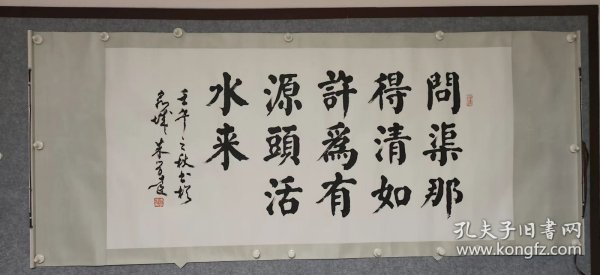 問渠那
得清如
許為有
源頭活
水来
壬午之秋書於
泉城 朱学達
孔夫子旧书网
www.kongfz.com